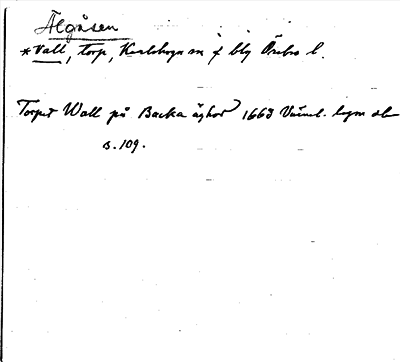 Älgåsen
*Vall, torp, Karlskoga sn o f bg Örebro l.
Torpet Wall på Backa äghor 1663 Värml. lagm db
s. 109.